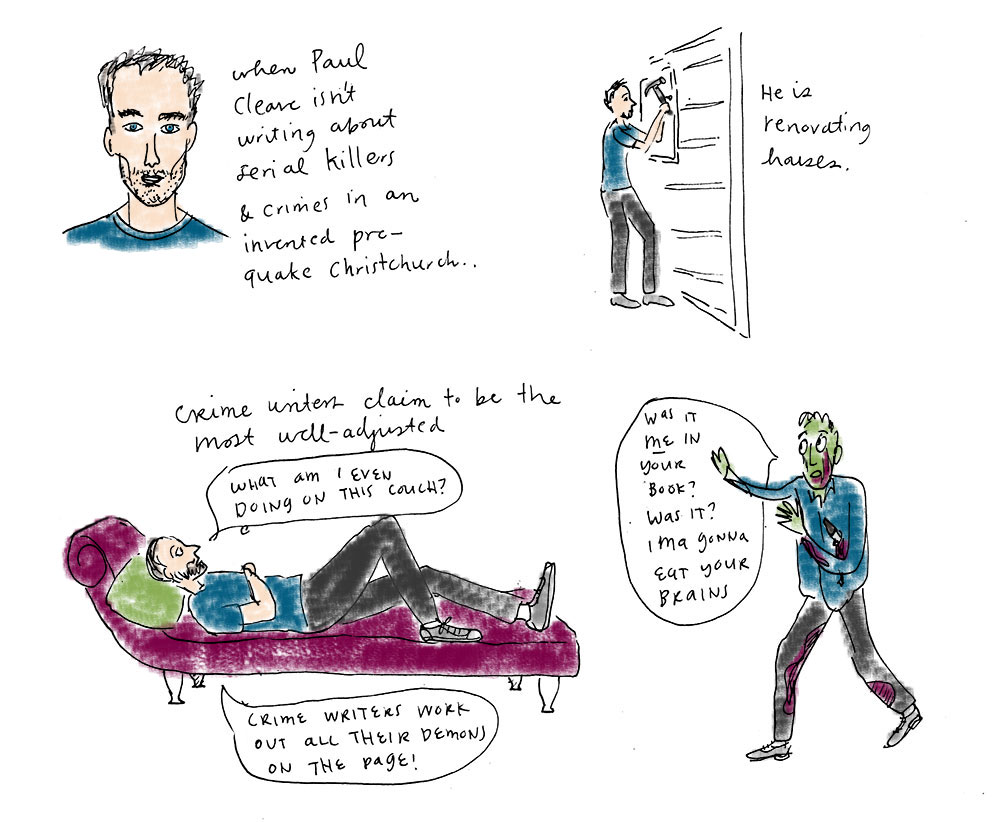 when Paul
Cleave isn't
writing about
serial killers
& crimes in an
invented pre-
quake Christchurch..
He is
renovating
houses.
Crime writers claim to be the
most well-adjusted
WHAT AM I EVEN
DOING ON THIS COUCH?
CRIME WRITERS WORK
OUT ALL THEIR DEMONS
ON THE PAGE!
WAS IT
ME IN
YOUR
BOOK?
WAS IT?
I MA GONNA
EAT YOUR
BRAINS